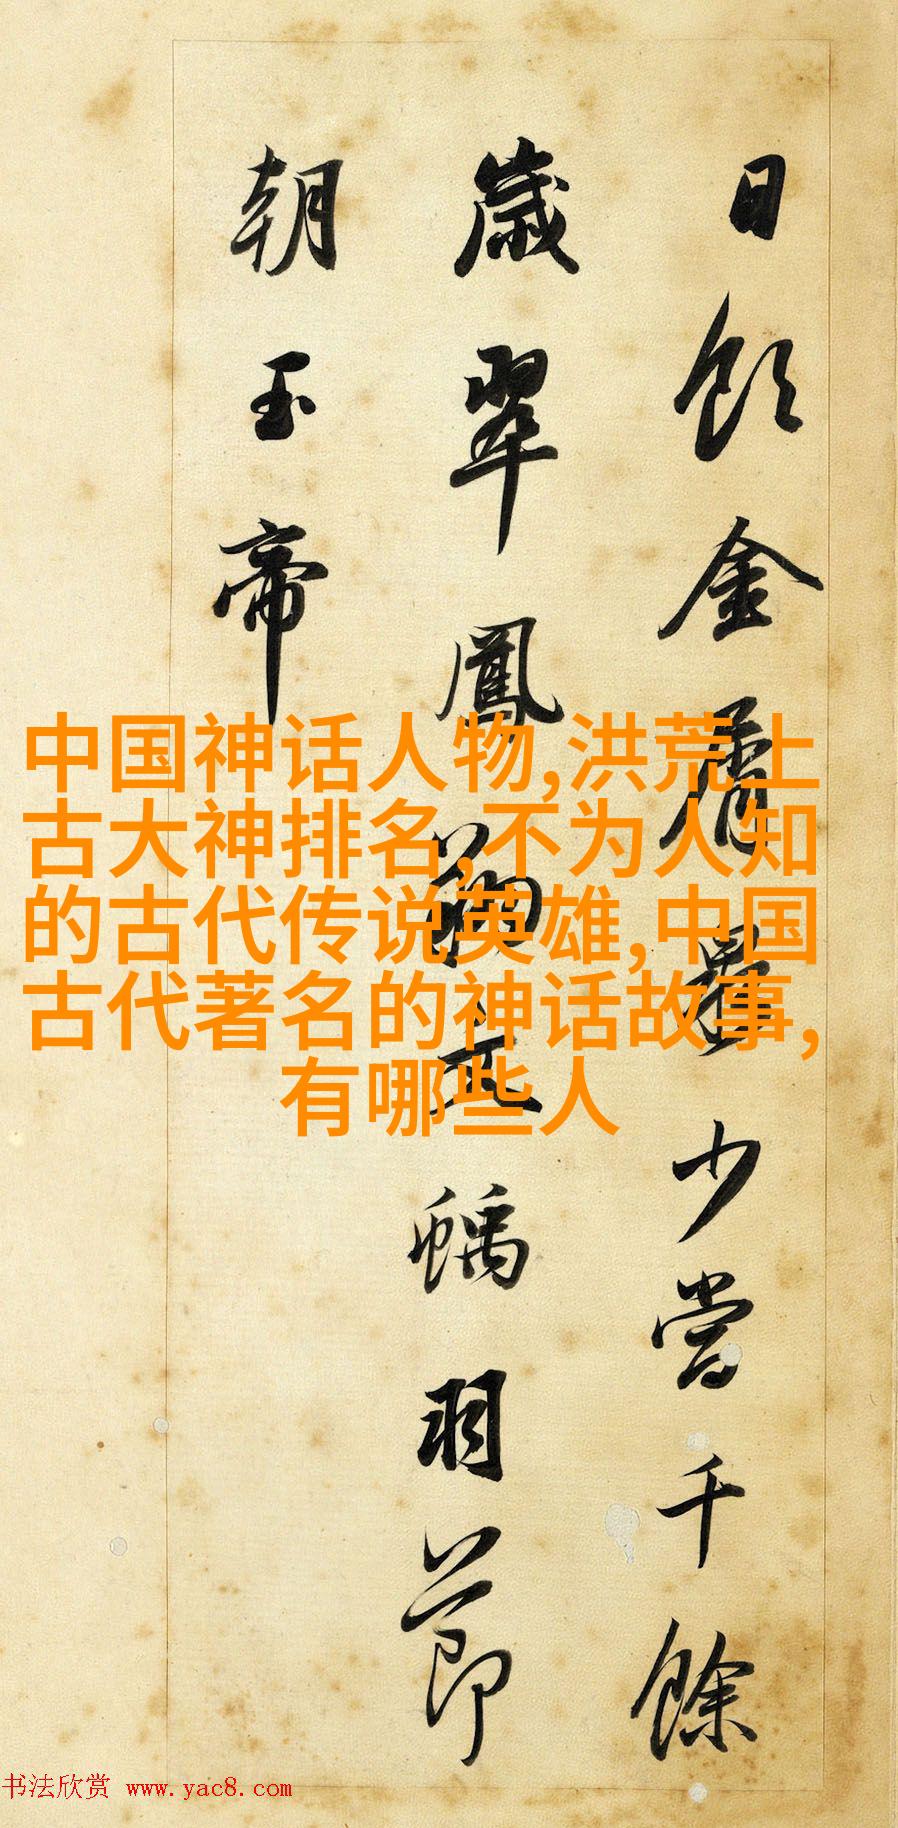 日飲金屑少當千餘
歲翠鳳螭羽節
朝玉帝
中国神话人物,洪荒上
古大神排名,不为人知
的古代传说英雄,中国
古代著名的神话故事,
有哪些人
书法欣赏 www.yac8.com